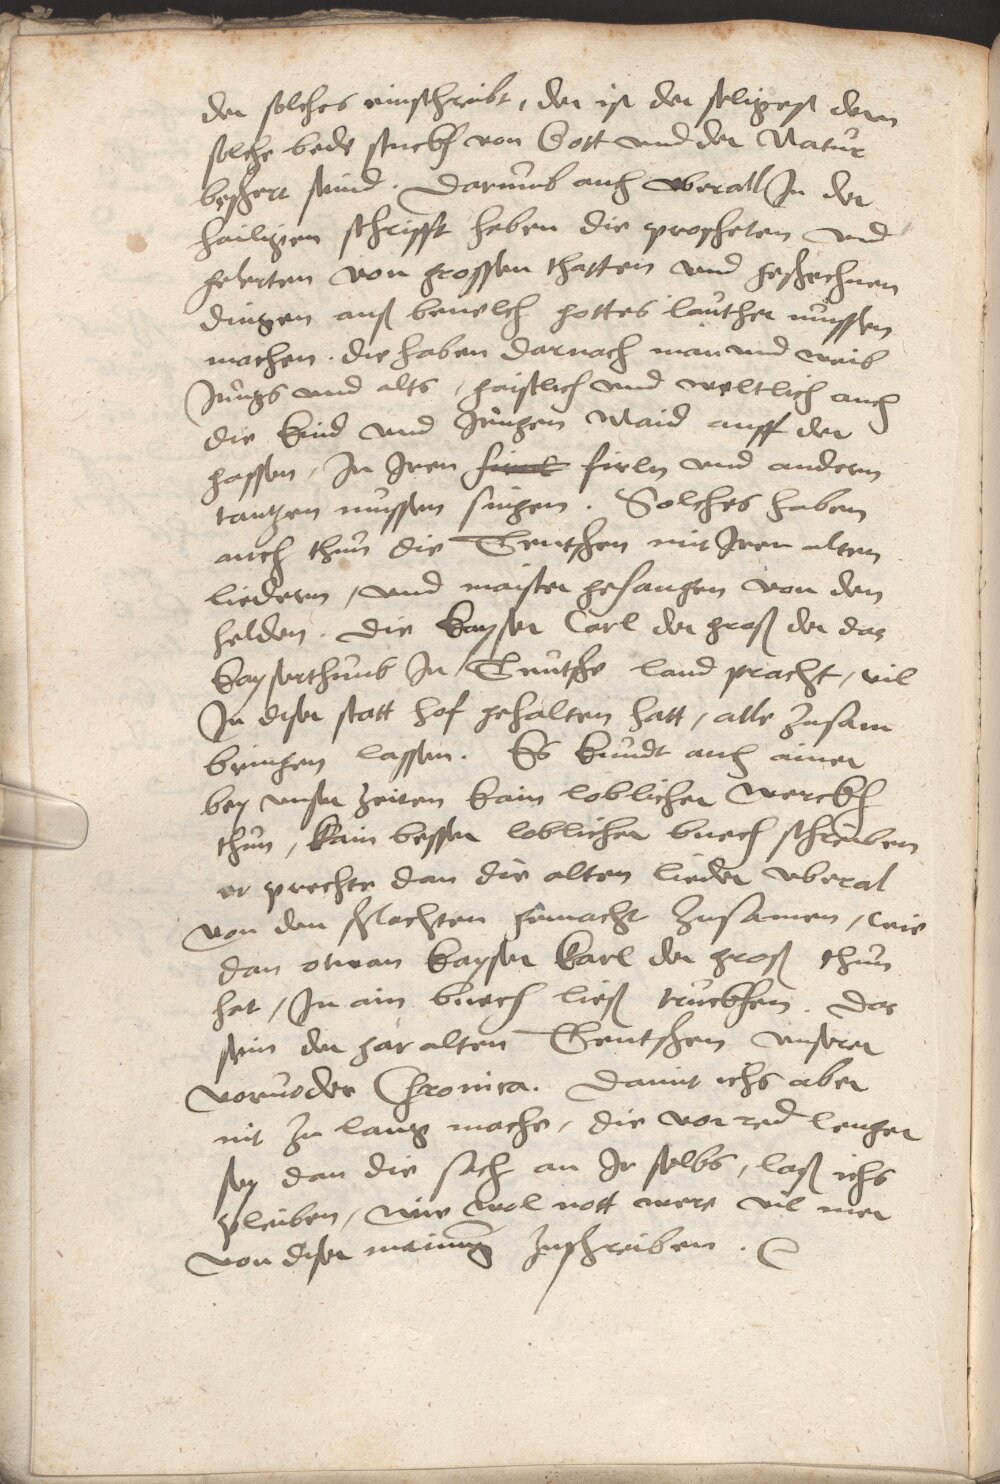 der solches einschreibt, der ist der seligest dem
solche bede stuckh von Gott und der Natur
beschert seind. Darumb auch uberall In der
hailigen schrifft haben die propheten und
gelerten von grossen thatten und geschechnen
dingen auß bevelch gottes lauther müssen
machen. die haben darnach man und weib
Jungs und alts, gaistlich und weltlich auch
die kind und Jungen Maid auff der
gassen, In Iren firln und andern
tantzen müssen singen. Solches haben
auch thun die Teutschen mit Iren alten
liedern, und maister gesangen von den
helden. die kayser Carl der groß der das
kayserthumb In Teutsche land pracht, vil
In diser statt hof gehalten hatt, alle zusam
bringen lassen. Es kundt auch ainer
bey unser zeiten kain loblicher werckh
thun, kain besser loblicher buech schreiben
er prechte dan die alten lieder uberal
von den schlachten gemacht zusamen, wie
dan etwan kayser karl der groß thun
hat, In ain buech ließ truckhen. Das
sein der gar alten Teutschen unserer
vorvoder Chronica. Damit ichs aber
nit zu lang mache, die vorred lenger
sey dan die sach an Ir selbs, laß ichs
pleiben, wie wol nott were vil mer
von diser mainung zuschreiben.